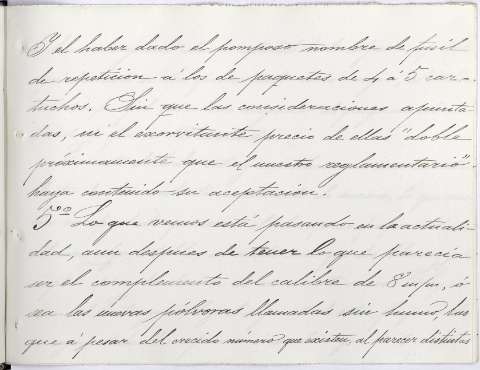 Y el haber dado el pomposo nombre de fusil
de repetición á los de paquetes de 4 á 5 car-
tuchos. Sin que las consideraciones apunta-
das, ni el exorvitante precio de ellas "doble
próximamente que el nuestro reglamentario".
haya contenido su aceptacion.
5º. Lo que vemos está pasando en la actuali-
dad, aun despues de tener lo que parecia
ser el complemento del calibre de 8 m/m, ó
sea las nuevas pólvoras llamadas sin humo, las
que á pesar del crecido número que existen, al parecer distintas